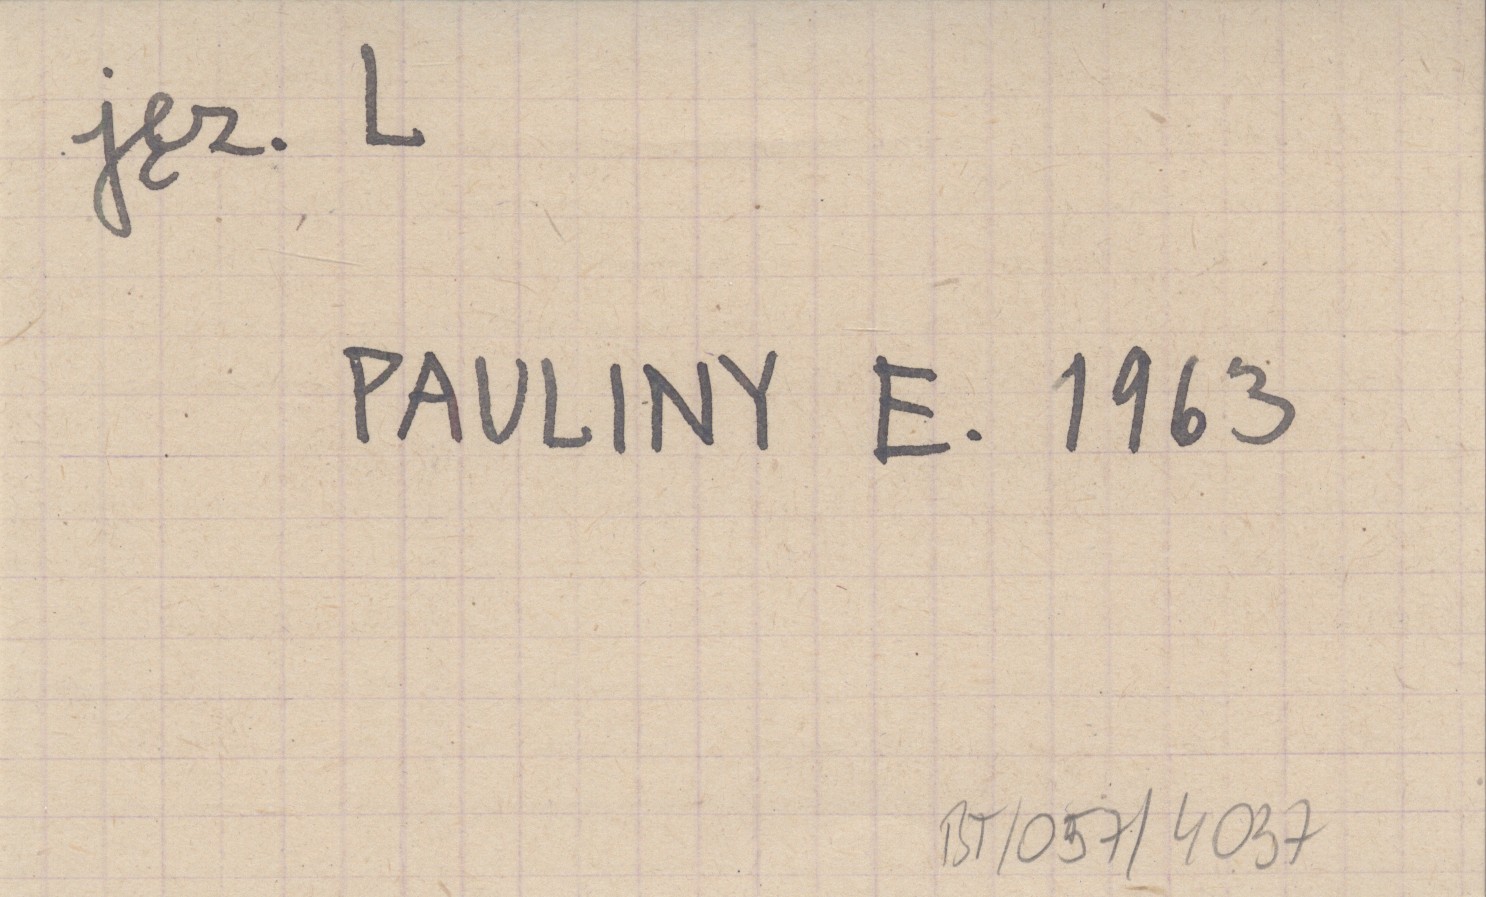 jęz. L
PAULINY E. 1963
BT/057/4037